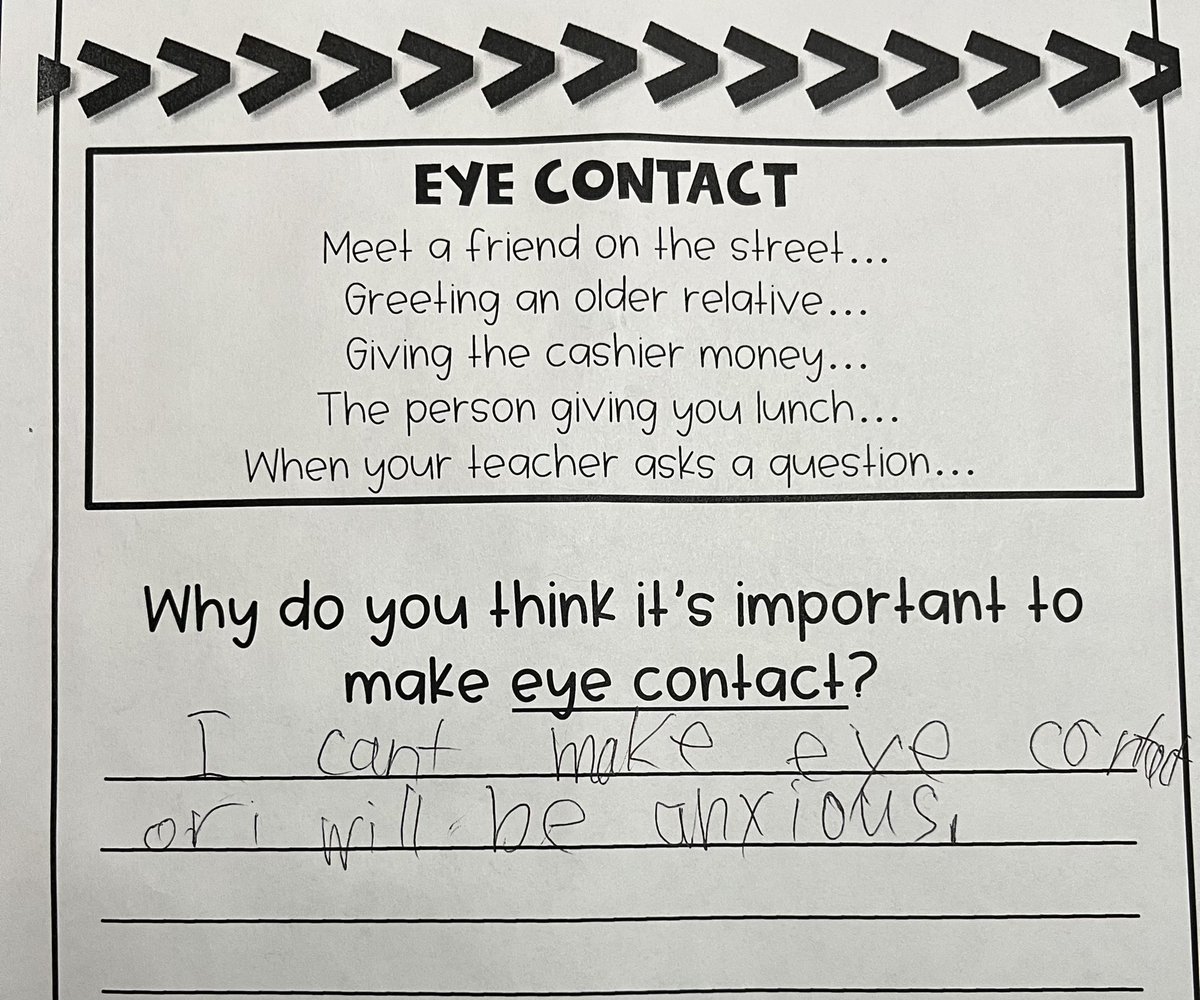 EYE CONTACT
Meet a friend on the street...
Greeting an older relative...
Giving the cashier money...
The person giving you lunch...
When your teacher asks a question...
Why do you think it's important to
make eye contact?
I cant make eye contact
or i will be anxious.